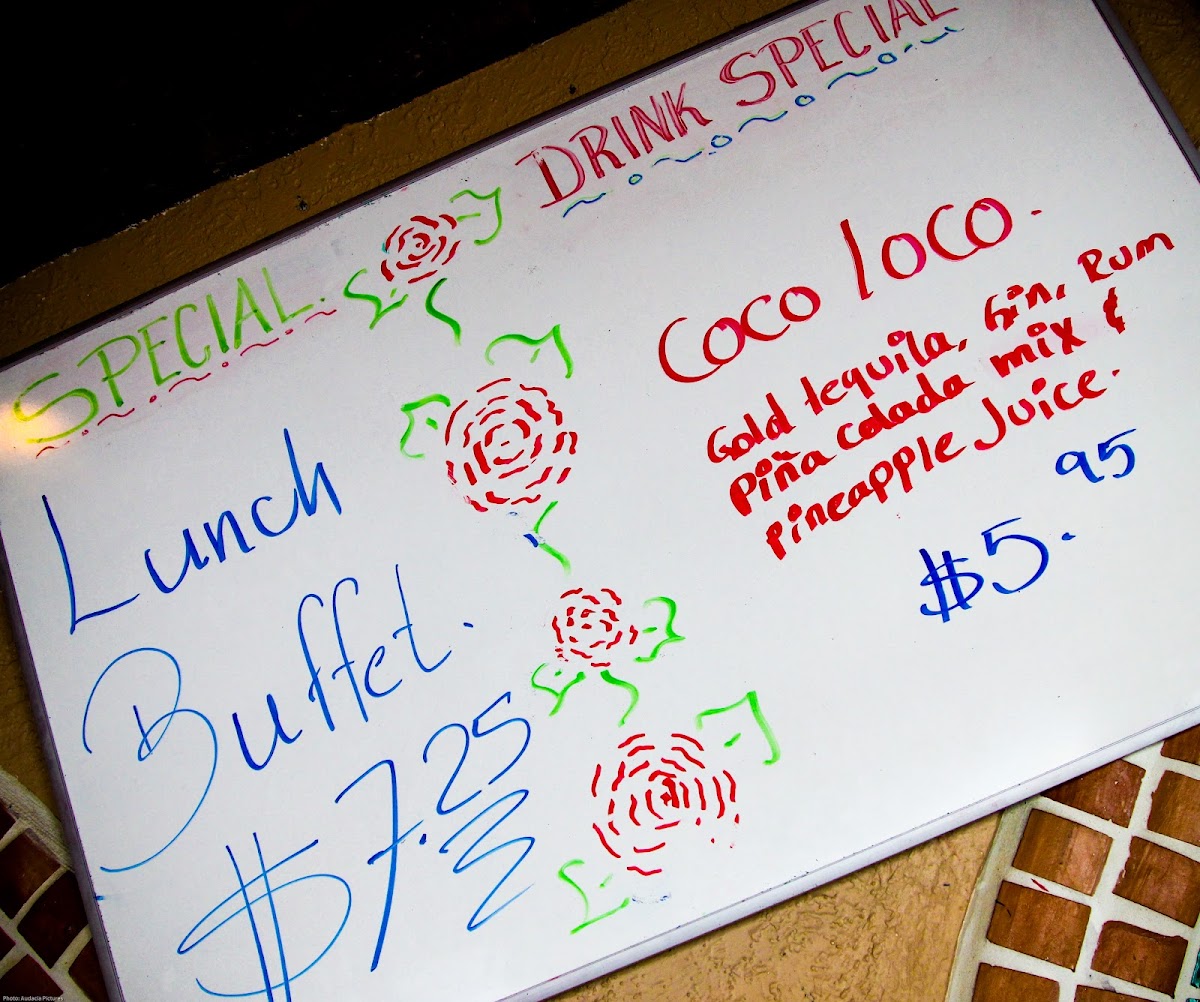 SPECIAL.
Lunch
Buffet.
$7.25
DRINK SPECIAL
Coco loco.
Gold tequila, Gin, Rum
Piña colada mix &
Pineapple Juice.
$5.95
Photo: Audacia Pictures